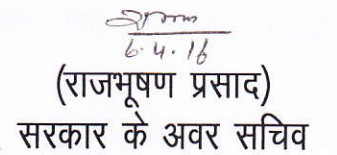 6.4.16
(राजभूषण प्रसाद)
सरकार के अवर सचिव